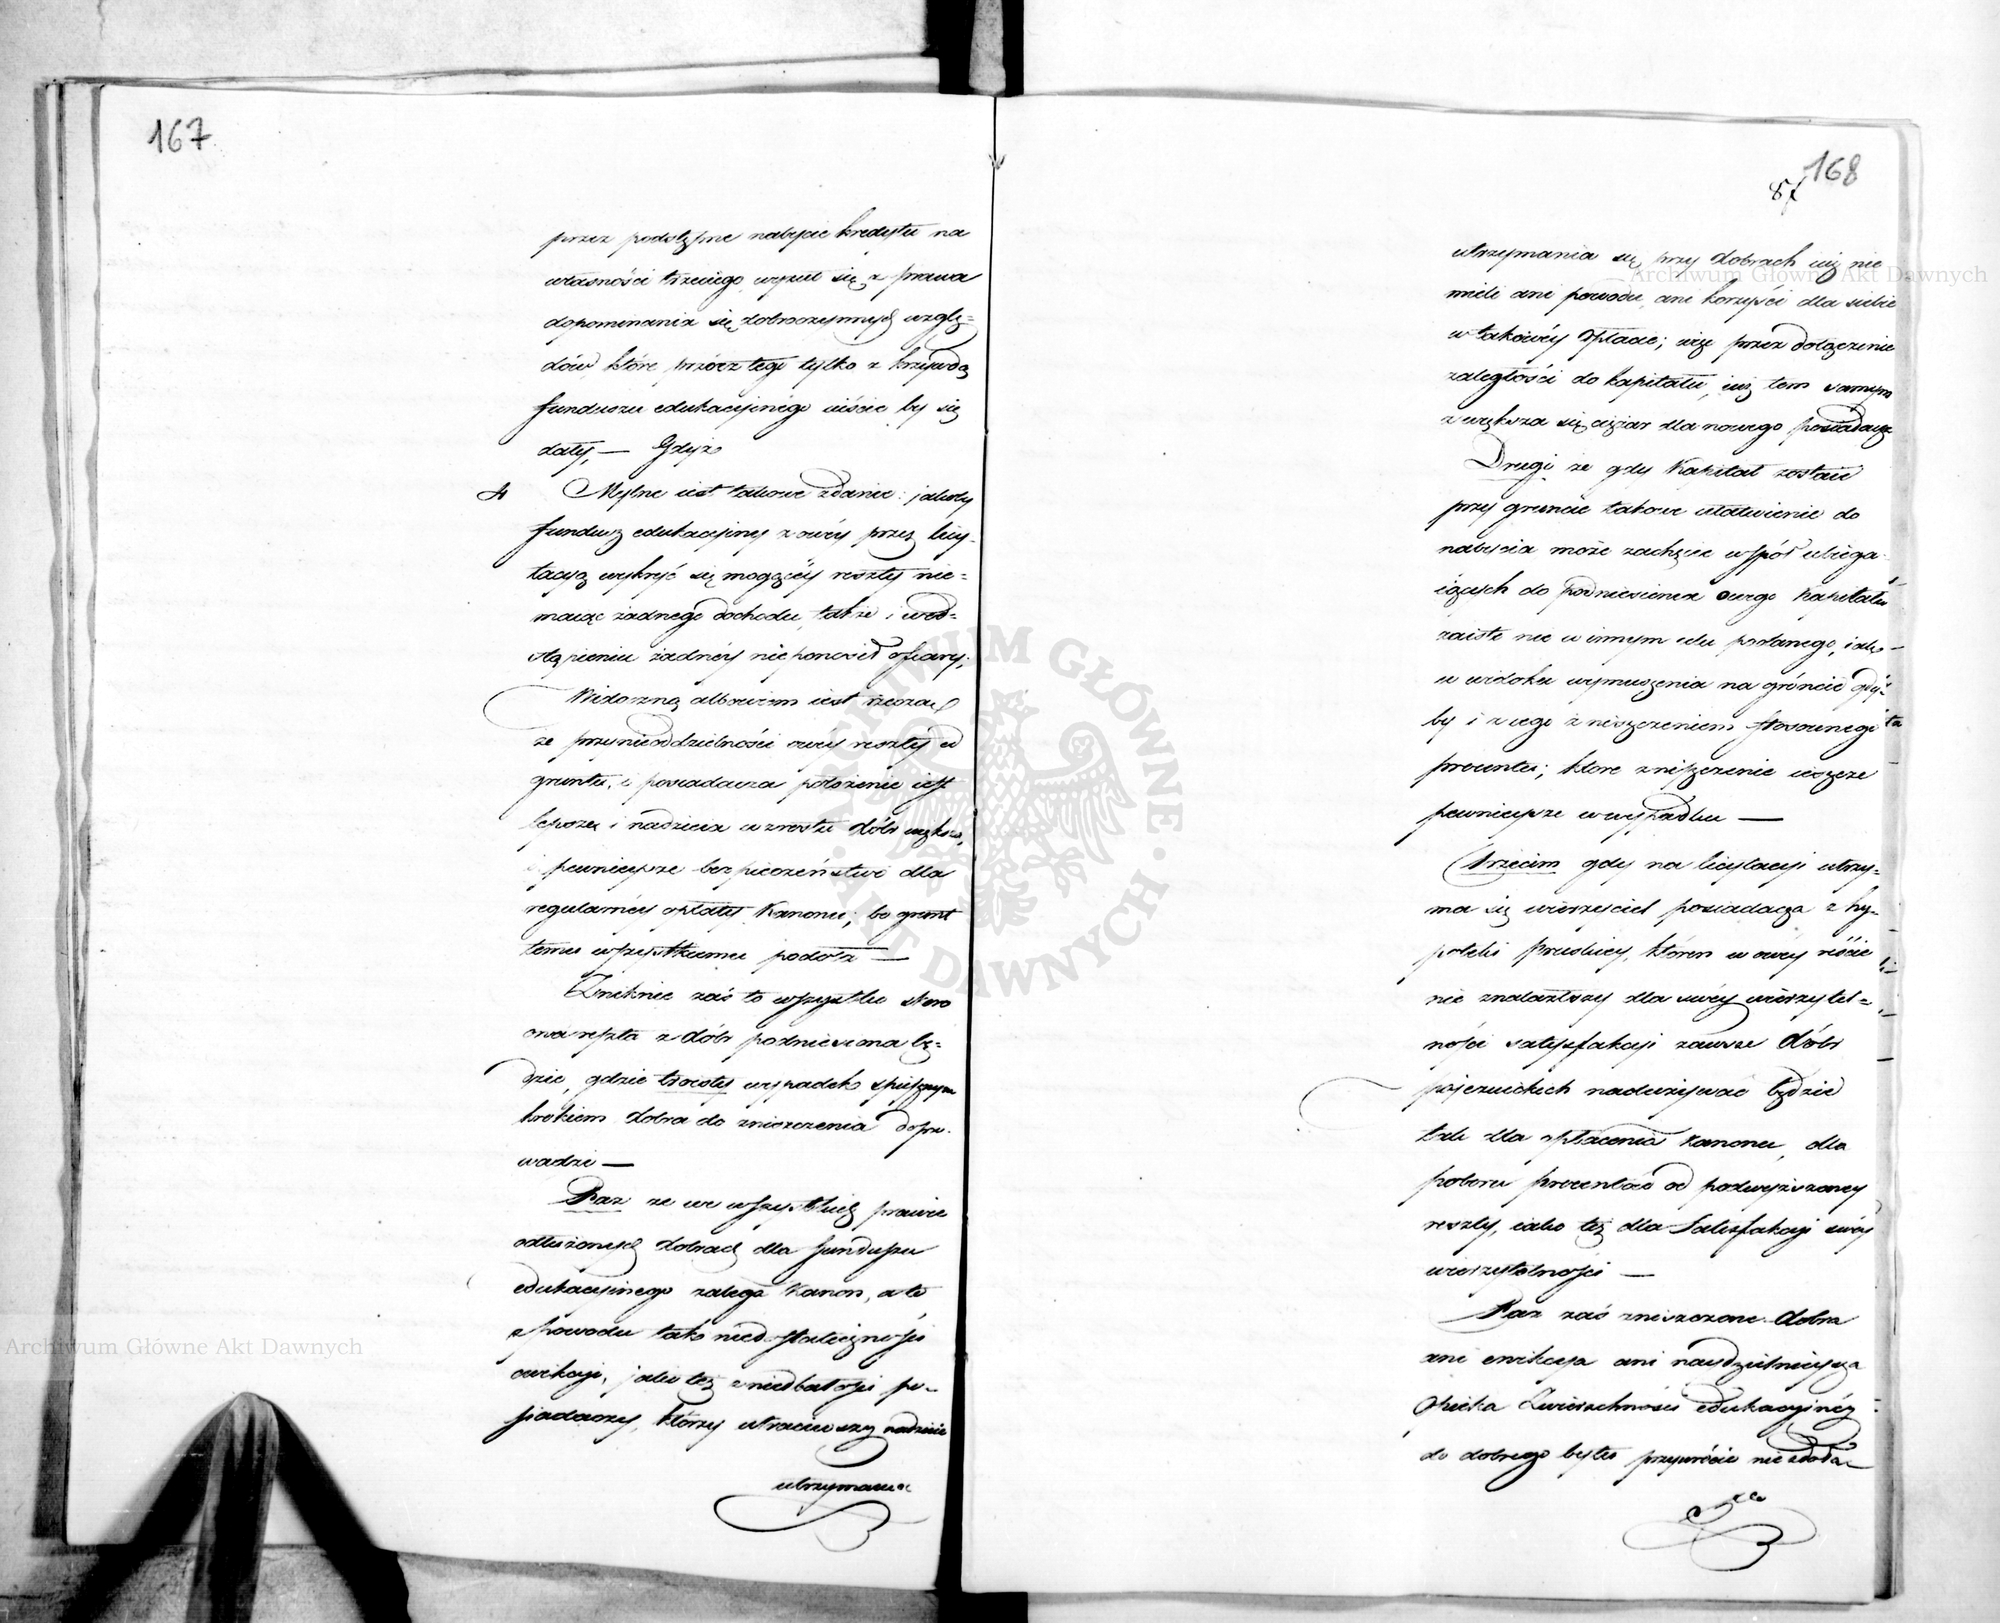 167
przez podstępne nabycie kredytu na
własności trzeciego wyzuł się z prawa
dopominania się dobroczynnych wzglę=
dów, które prócz tego tylko z krzywdą
funduszu edukacyinego iścić by się
dały, — Gdyż
4 Mylne iest takowe zdanie: jakoby
fundusz edukacyiny z owéy przez licy-
tacyą wykryć się mogącéy reszty nie=
maiąc żadnego dochodu, także i w od=
stąpieniu żadnéy nieponosił ofiary;
Widoczną albowiem iest rzeczą
że przy nieoddzielności owéy reszty od
gruntu, i posiadacza położenie iest
lepsze i nadzieia wzrostu dóbr większa,
i pewnieysze bezpieczeństwo dla
regularnéy opłaty Kanonu; bo grunt
temu wszystkiemu podoła —
Zniknie zaś to wszystko skoro
owa reszta z dóbr podniesiona bę=
dzie, gdzie troisty wypadek spiesznym
krokiem dobra do zniszczenia dopro-
wadzi —
Raz że we wszystkich prawie
odłużonych dobrach dla funduszu
edukacyinego zalega Kanon, a to
z powodu tak niedostateczności
ewikcyi, jako też z niedbałości po-
siadaczy, którzy utraciwszy nadzieię
utrzymania
168
87
utrzymania się przy dobrach iuż nie
mieli ani powodu, ani korzyści dla siebie
w takowéy opłacie; więc przez dołączenie
zaległości do kapitału, iuż tem samym
zwiększa się ciężar dla nowego posiadacza
Drugi że gdy Kapitał zostaie
przy gruncie takowe ułatwienie do
nabycia może zachęcić współubiega-
iących do podniesienia owego Kapitału
zaiste nie w innym celu podanego, iak
w widoku wymuszenia na gróncie gdy-
by i z iego zniszczeniem stosownego
procentu; które zniszczenie ieszcze
pewnieysze w wypadku —
Trzecim gdy na licytacyi utrzy-
ma się wierzyciel posiadacza z hy-
poteki Pruskiey, któren w owéy reście
nie znalazłszy dla swéy wierzytel=
ności satysfakcyi zawsze dóbr
pojezuickich nadużywać będzie
tak dla opłacenia Kanonu, dla
poboru procentów od podwyższoney
reszty, iako też dla Satisfakcyi swéy
wierzytelności —
Raz zaś zniszczone dobra
ani ewikcya ani naydzielnieysza
Opieka Zwierzchności edukacyinéy
do dobrego bytu przywrócić nie zdoła —
Archiwum Główne Akt Dawnych
Archiwum Główne Akt Dawnych
ARCHIWUM GŁÓWNE AKT DAWNYCH